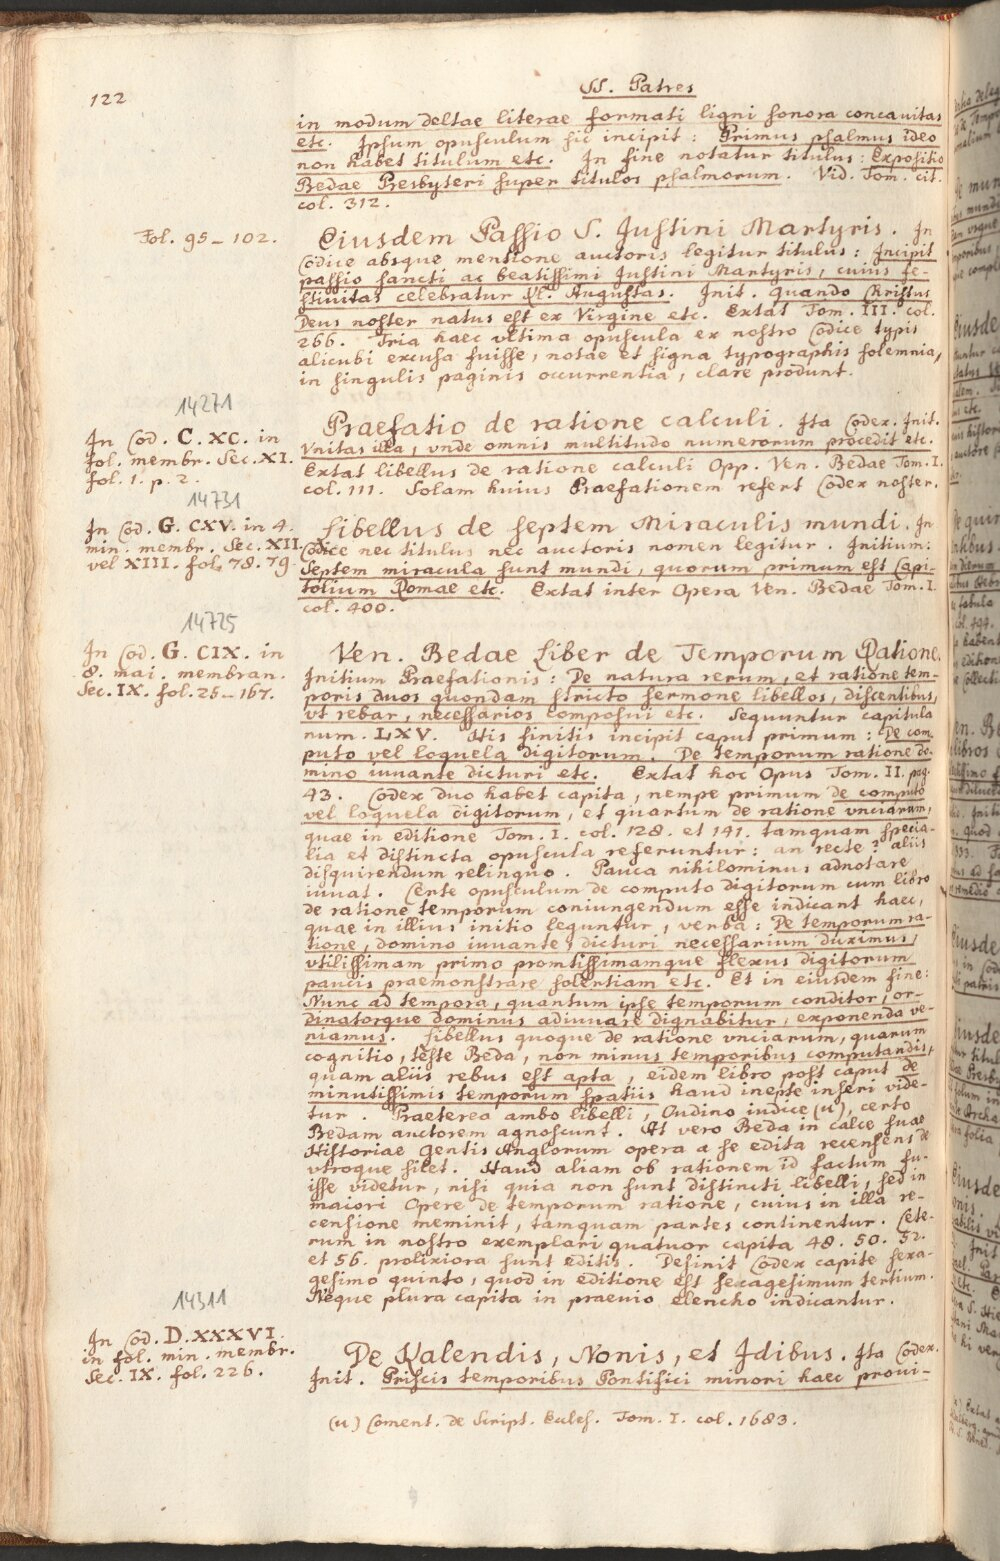 122
SS. Patres
in modum deltae literae formati ligni sonora concauitas
etc. Ipsum opusculum sic incipit: Primus psalmus ideo
non habet titulum etc. In fine notatur titulus: Expositio
Bedae Presbyteri super titulos psalmorum. Vid. Tom. cit.
col. 312.
Fol. 95–102.
Eiusdem Passio S. Justini Martyris. In
Codice absque mentione auctoris legitur titulus: Incipit
passio sancti ac beatissimi Justini Martyris, cuius fe-
stiuitas celebratur Kl. Augustas. Init. Quando Christus
Deus noster natus est ex Virgine etc. Extat Tom. III. col.
266. Tria haec vltima opuscula ex nostro Codice typis
alicubi excusa fuisse, notae et signa typographis solemnia,
in singulis paginis occurrentia, clare produnt.
14271
In Cod. C. XC. in
fol. membr. Sec. XI.
fol. 1. p. 2.
Praefatio de ratione calculi. Ita Codex. Init.
Vnitas illa, vnde omnis multitudo numerorum procedit etc.
Extat libellus de ratione calculi Opp. Ven. Bedae Tom. I.
col. 111. Solam huius Praefationem refert Codex noster.
14731
In Cod. G. CXV. in 4.
min. membr. Sec. XII.
vel XIII. fol. 78. 79.
Libellus de septem Miraculis mundi. In
Codice nec titulus nec auctoris nomen legitur. Initium:
Septem miracula sunt mundi, quorum primum est Capi-
tolium Romae etc. Extat inter Opera Ven. Bedae Tom. I.
col. 400.
14725
In Cod. G. CIX. in
8. mai. membran.
Sec. IX. fol. 25–167.
Ven. Bedae Liber de Temporum Ratione.
Initium Praefationis: De natura rerum, et ratione tem-
poris duos quondam stricto sermone libellos, discentibus,
vt rebar, necessarios composui etc. Sequuntur capitula
num. LXV. His finitis incipit caput primum: De com-
puto vel loquela digitorum. De temporum ratione do-
mino iuuante dicturi etc. Extat hoc Opus Tom. II. pag.
43. Codex duo habet capita, nempe primum de computo
vel loquela digitorum, et quartum de ratione vnciarum,
quae in editione Tom. I. col. 128. et 141. tamquam specia-
lia et distincta opuscula referuntur: an recte? aliis
disquirendum relinquo. Pauca nihilominus adnotare
iuuat. Certe opusculum de computo digitorum cum libro
de ratione temporum coniungendum esse indicant haec,
quae in illius initio leguntur, verba: De temporum ra-
tione, domino iuuante, dicturi necessarium duximus,
vtilissimam primo promtissimamque flexus digitorum
paucis praemonstrare solentiam etc. Et in eiusdem fine:
Nunc ad tempora, quantum ipse temporum conditor, or-
dinatorque dominus adiuuare dignabitur, exponenda ve-
niamus. Libellus quoque de ratione vnciarum, quarum
cognitio, teste Beda, non minus temporibus computandis,
quam aliis rebus est apta, eidem libro post caput de
minutissimis temporum spatiis haud inepte inseri vide-
tur. Praeterea ambo libelli, Oudino iudice (u), certo
Bedam auctorem agnoscunt. At vero Beda in calce suae
Historiae Gentis Anglorum opera a se edita recensens de
vtroque silet. Haud aliam ob rationem id factum fu-
isse videtur, nisi quia non sunt distincti libelli, sed in
maiori Opere de temporum ratione, cuius in illa re-
censione meminit, tamquam partes continentur. Cete-
rum in nostro exemplari quatuor capita 48. 50. 52.
et 56. prolixiora sunt editis. Definit Codex capite sexa-
gesimo quinto, quod in editione est sexagesimum tertium.
Neque plura capita in praeuio Elencho indicantur.
14311
In Cod. D. XXXVI.
in fol. min. membr.
Sec. IX. fol. 226.
De Kalendis, Nonis, et Idibus. Ita Codex.
Init. Priscis temporibus Pontifici minori haec proui-
(u) Coment. de Script. Eccles. Tom. I. col. 1683.